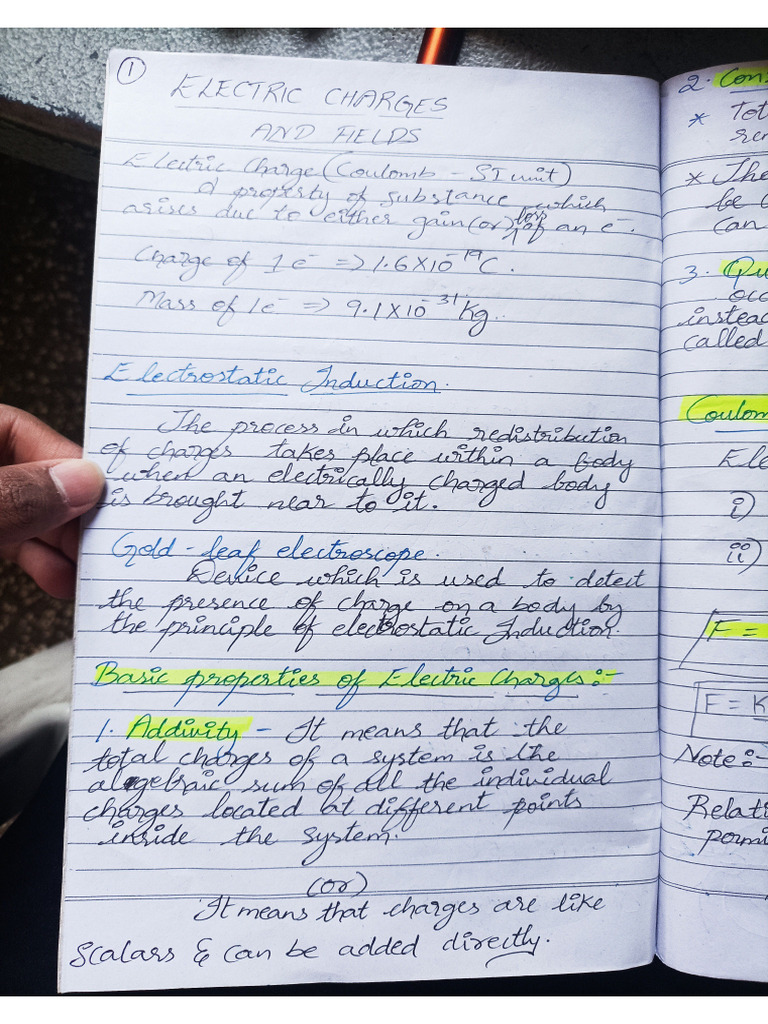 1
ELECTRIC CHARGES
AND FIELDS
Electric Charge (Coulomb - SI unit)
A property of substance which
arises due to either gain (or) loss of an e⁻.
Charge of 1 e⁻ => 1.6×10⁻¹⁹ C.
Mass of 1e⁻ => 9.1×10⁻³¹ Kg.
Electrostatic Induction.
The process in which redistribution
of charges takes place within a body
when an electrically charged body
is brought near to it.
Gold-leaf electroscope.
Device which is used to detect
the presence of charge on a body by
the principle of electrostatic Induction.
Basic properties of Electric Charges:-
1. Addivity - It means that the
total charges of a system is the
algebraic sum of all the individual
charges located at different points
inside the system.
(or)
It means that charges are like
Scalars & can be added directly.
2.
*
* The
be
can
3.
instead
called
i)
ii)
F =
F = K
Note:-